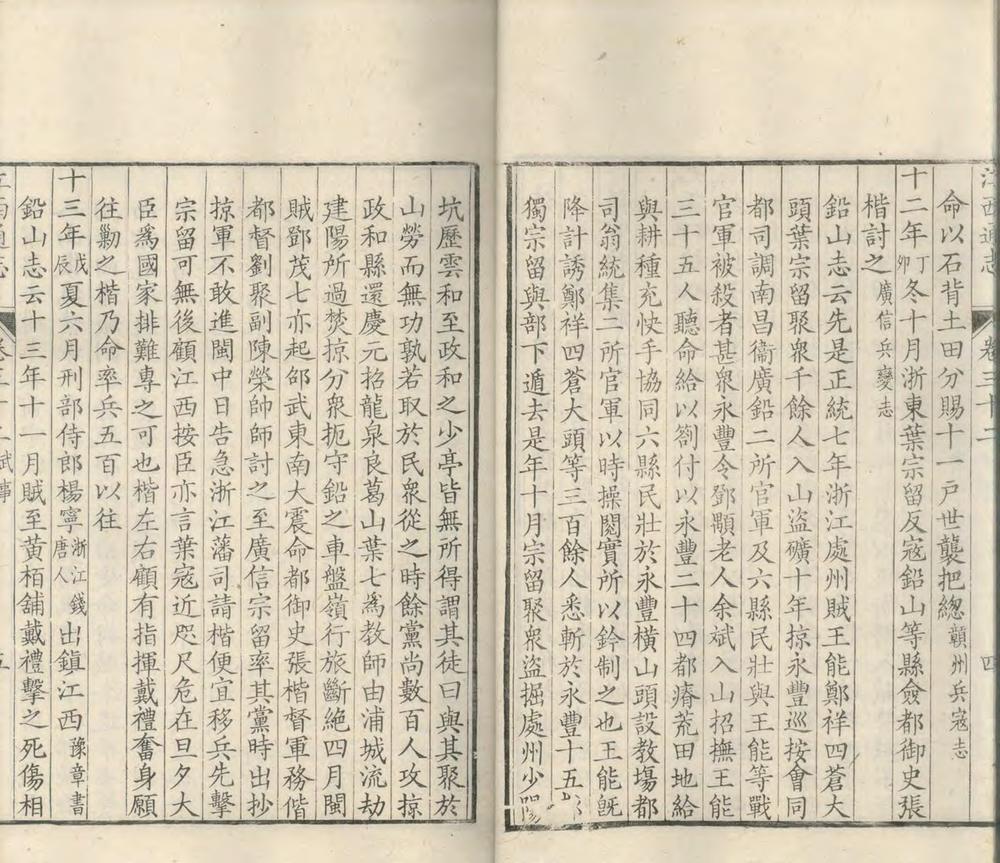 江西通志
卷三十二
四
命以石背土田分賜十一戸世襲把緫贛州兵寇志
十二年丁卯冬十月浙東葉宗留反寇鉛山等縣僉都御史張
楷討之廣信兵變志
鉛山志云先是正統七年浙江處州賊王能鄭祥四蒼大
頭葉宗留聚衆千餘人入山盜礦十年掠永豐巡按會同
都司調南昌衞廣鉛二所官軍及六縣民壯與王能等戰
官軍被殺者甚衆永豐令鄧顒老人余斌入山招撫王能
三十五人聽命給以劄付以永豐二十四都瘠荒田地給
與耕種充快手協同六縣民壯於永豐橫山頭設教塲都
司翁統集二所官軍以時操閱實所以鈐制之也王能旣
降計誘鄭祥四蒼大頭等三百餘人悉斬於永豐十五
獨宗留與部下遁去是年十月宗留聚衆盜掘處州少陽
坑歷雲和至政和之少亭皆無所得謂其徒曰與其聚於
山勞而無功孰若取於民衆從之時餘黨尚數百人攻掠
政和縣還慶元招龍泉良葛山葉七爲教師由浦城流劫
建陽所過焚掠分衆扼守鉛之車盤嶺行旅斷絕四月閩
賊鄧茂七亦起邰武東南大震命都御史張楷督軍務偕
都督劉聚副陳榮帥師討之至廣信宗留率其黨時出抄
掠軍不敢進閩中日告急浙江藩司請楷便宜移兵先擊
宗留可無後顧江西按臣亦言葉寇近咫尺危在旦夕大
臣爲國家排難專之可也楷左右顧有指揮戴禮奮身願
往勦之楷乃命率兵五百以往
十三年戊辰夏六月刑部侍郎楊寧浙江錢唐人出鎭江西豫章書
鉛山志云十三年十一月賊至黃栢舖戴禮擊之死傷相